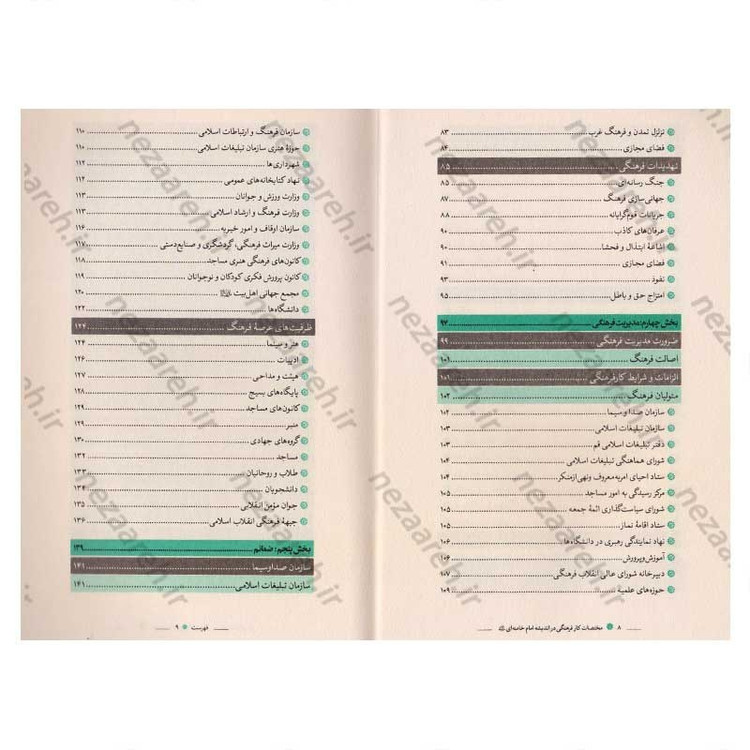 تزلزل تمدن و فرهنگ غرب ۸۳
فضای مجازی ۸۴
تهدیدات فرهنگی ۸۵
جنگ رسانه‌ای ۸۵
جهانی‌سازی فرهنگ ۸۷
جریانات قوم‌گرایانه ۸۸
عرفان‌های کاذب ۹۰
اشاعهٔ ابتذال و فحشا ۹۰
فضای مجازی ۹۱
نفوذ ۹۳
امتزاج حق و باطل ۹۵
بخش چهارم: مدیریت فرهنگی ۹۷
ضرورت مدیریت فرهنگی ۹۹
اصالت فرهنگ ۱۰۱
الزامات و شرایط کار فرهنگی ۱۰۱
متولیان فرهنگ ۱۰۲
سازمان صدا و سیما ۱۰۲
سازمان تبلیغات اسلامی ۱۰۳
دفتر تبلیغات اسلامی قم ۱۰۳
شورای هماهنگی تبلیغات اسلامی ۱۰۴
ستاد احیای امربه‌معروف ونهی‌ازمنکر ۱۰۴
مرکز رسیدگی به امور مساجد ۱۰۵
شورای سیاست‌گذاری ائمهٔ جمعه ۱۰۵
ستاد اقامهٔ نماز ۱۰۵
نهاد نمایندگی رهبری در دانشگاه‌ها ۱۰۶
آموزش‌وپرورش ۱۰۶
دبیرخانه شورای عالی انقلاب فرهنگی ۱۰۷
حوزه‌های علمیه ۱۰۹
۸ مختصات کار فرهنگی در اندیشه امام خامنه‌ای
سازمان فرهنگ و ارتباطات اسلامی ۱۱۰
حوزهٔ هنری سازمان تبلیغات اسلامی ۱۱۰
شهرداری‌ها ۱۱۲
نهاد کتابخانه‌های عمومی ۱۱۲
وزارت ورزش و جوانان ۱۱۳
وزارت فرهنگ و ارشاد اسلامی ۱۱۳
سازمان اوقاف و امور خیریه ۱۱۶
وزارت میراث فرهنگی، گردشگری و صنایع‌دستی ۱۱۷
کانون‌های فرهنگی هنری مساجد ۱۱۸
کانون پرورش فکری کودکان و نوجوانان ۱۱۹
مجمع جهانی اهل‌بیت ۱۲۰
دانشگاه‌ها ۱۲۲
ظرفیت‌های عرصهٔ فرهنگ
هنر و سینما ۱۲۴
ادبیات ۱۲۶
هیئت و مداحی ۱۲۷
پایگاه‌های بسیج ۱۲۸
کانون‌های مساجد ۱۲۹
منبر ۱۲۹
گروه‌های جهادی ۱۳۰
مساجد ۱۳۲
طلاب و روحانیان ۱۳۳
دانشجویان ۱۳۴
جوان مؤمن انقلابی ۱۳۵
جبههٔ فرهنگی انقلاب اسلامی ۱۳۶
بخش پنجم: ضمائم ۱۳۹
سازمان صداوسیما ۱۴۱
سازمان تبلیغات اسلامی ۱۴۱
فهرست ۹
nezaareh.ir